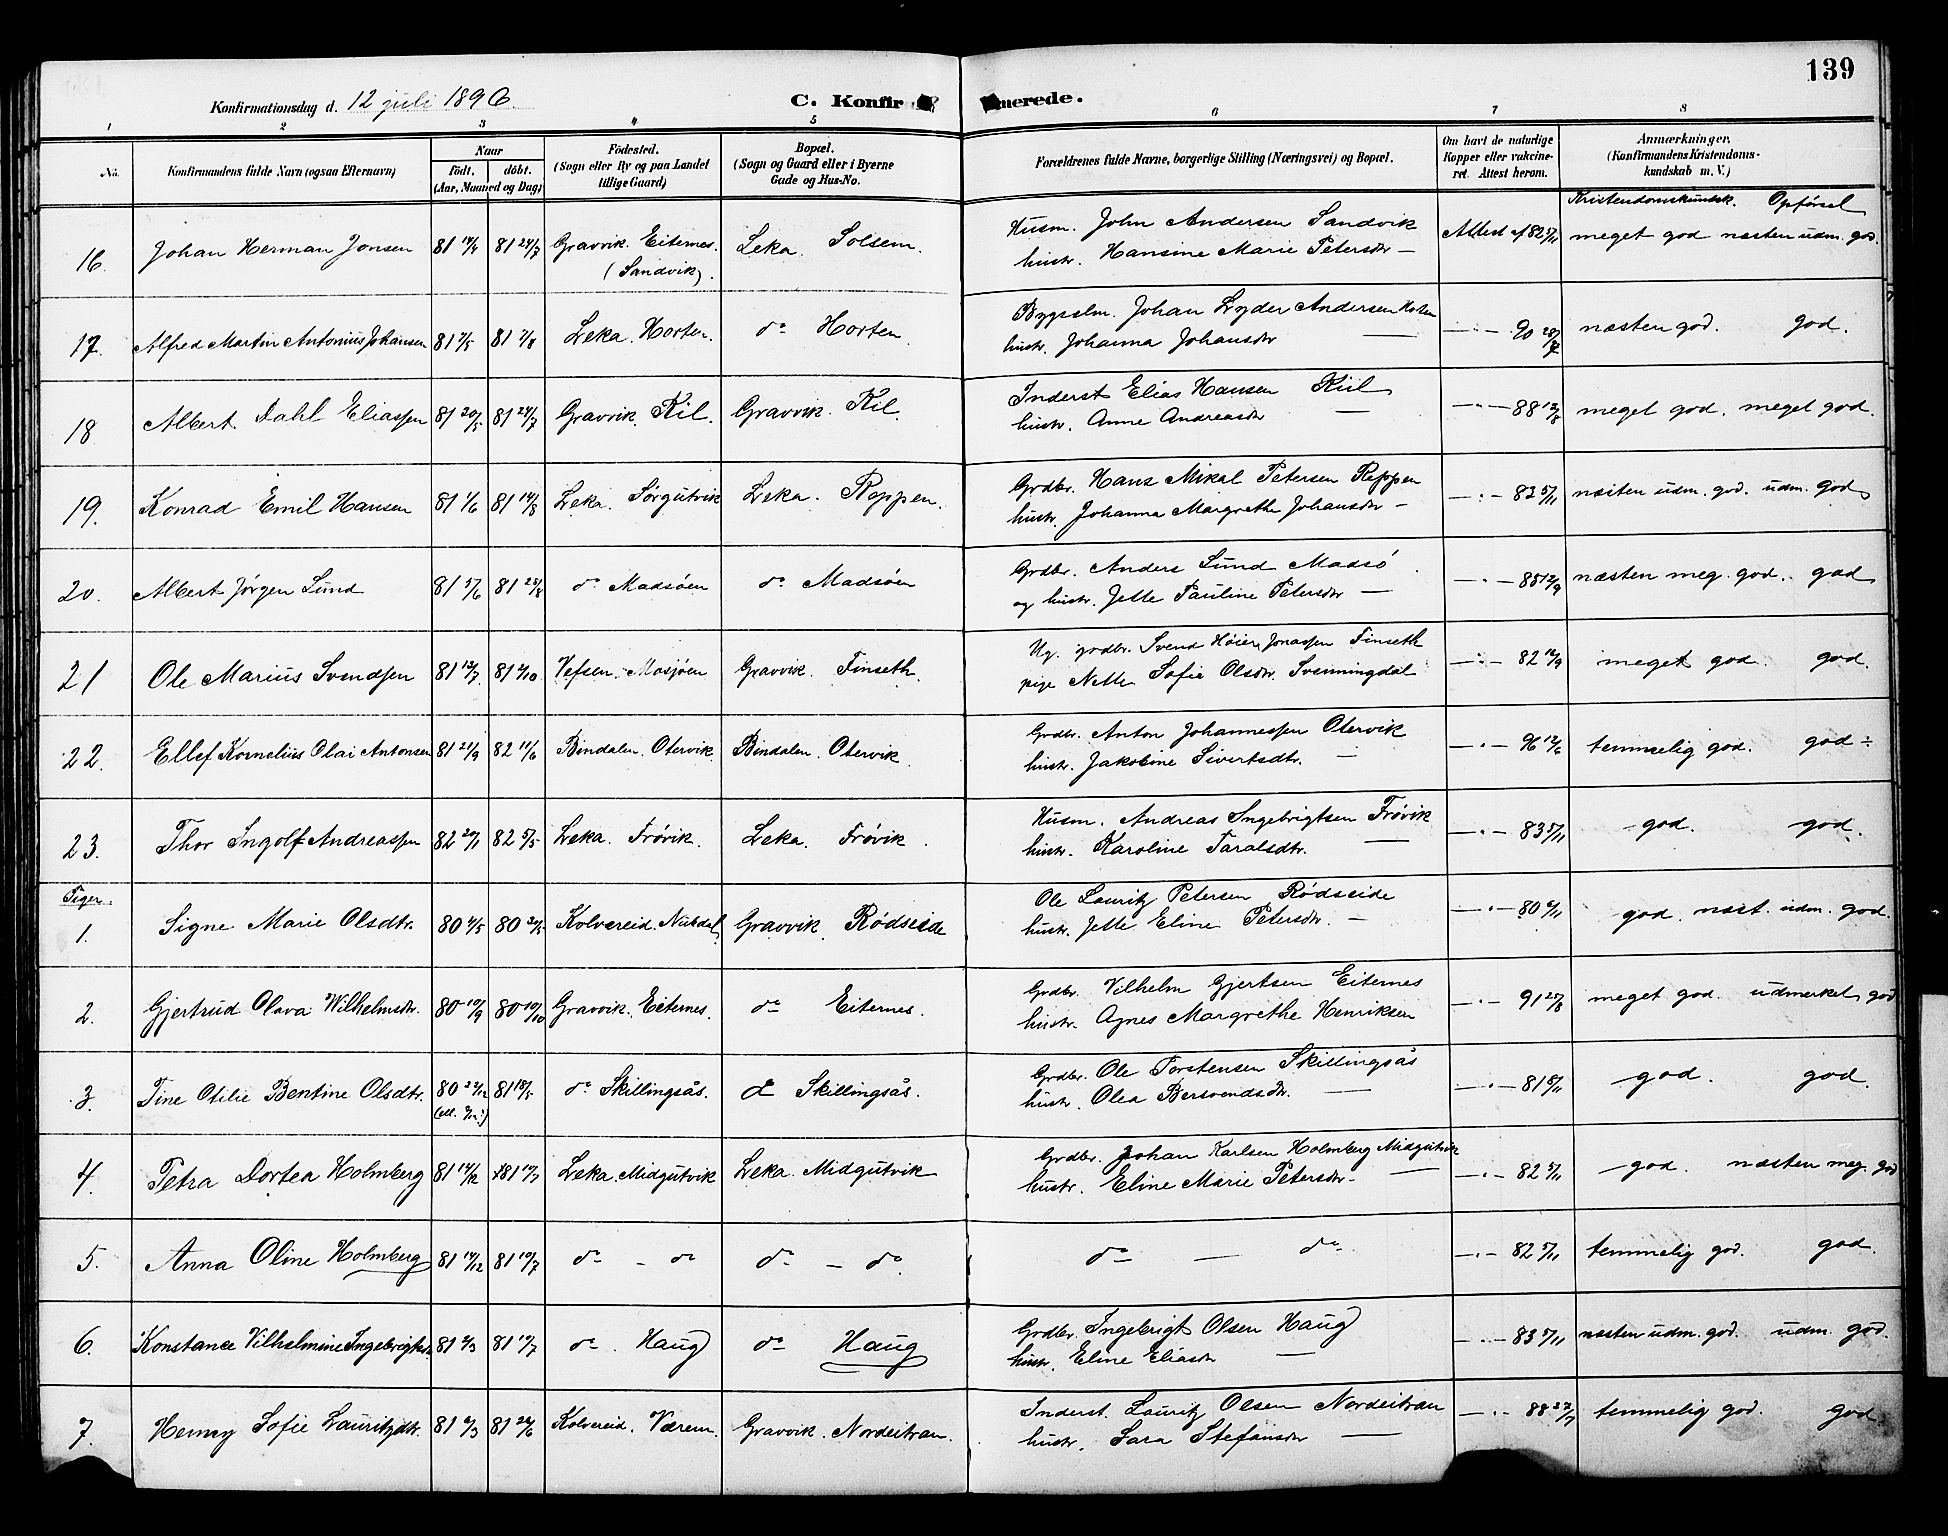 139
Konfirmationsdag d. 12 juli 1896. C. Konfirmerede.
1 2 3 4 5 6 7 8
No. Konfirmandens fulde Navn (ogsaa Efternavn) Naar født. døbt. (Aar, Maaned og Dag) Fødested. (Sogn eller By og paa Landet tillige Gaard) Bopæl. (Sogn og Gaard eller i Byerne Gade og Hus-No. Forældrenes fulde Navne, borgerlige Stilling (Næringsvei) og Bopæl. Om havt de naturlige Kopper eller vakcineret. Attest herom. Anmærkninger. (Konfirmandens Kristendomskundskab m. V.)
Kristendomskundsk. Opførsel
16. Johan Herman Jonsen 81 81 24/7 Gravvik. Eiternes. (Sandvik). Leka. Solsem. Husm. John Andersen Sandvik
hustr. Hansine Marie Petersdtr — Attest af 82 5/11 meget god næsten udm. god.
17. Alfred Martin Antonius Johansen 81 81 7/8 Leka. Horten. do Horten. Bygselm. Johan Lyder Andersen Horten
hustr. Johanna Johansdtr — — 90 næsten god. god.
18 Albert Dahl Eliassen 81 20/5 81 24/7 Gravvik. Kil. Gravvik. Kil. Inderst Elias Hansen Kiil
hustr. Anne Andreasdtr — — 88 12/8 meget god. meget god.
19. Konrad Emil Hansen 81 1/6 81 14/8 Leka. Sørgutvik Leka. Roppen. Grdbr. Hans Mikal Petersen Roppen
hustr. Johanna Margrethe Johansdtr — — 82 5/11 næsten udm. god. udm. god
20. Albert Jørgen Lund 81 5/6 81 25/8 do Madsøen do Madsøen Grdbr. Anders Lund Madsø.
og hustr. Jette Pauline Petersdtr — — 85 12/9 næsten meg. god. god
21 Ole Marius Svendsen 81 12/7 81 2/10 Vefsen. Mosjøen Gravvik. Finseth. Ug. grdbr. Svend Høier Jonassen Finseth
pige Nette Sofie Olsdtr. Svenningdal — 82 meget god. god.
22. Ellef Kornelius Olai Antonsen 81 21/9 82 11/6 Bindalen. Otervik Bindalen. Otervik. Grdbr. Anton Johannessen Otervik
hustr. Jakobine Sivertsdtr. — — 96 12/6 temmelig god. god ÷
23. Thor Ingolf Andreassen 82 20/1 82 5/5 Leka. Frøvik. Leka. Frøvik. Husm. Andreas Ingebrigtsen Frøvik
hustr. Karoline Taralsdtr. — — 83 5/11 god. god.
Piger.
1. Signe Marie Olsdtr. 80 80 Kolvereid. Gravvik. Rødseide Ole Lauritz Petersen Rødseide
hustr. Jette Eline Petersdtr. — — 80 god. næst. udm. god.
2. Gjertrud Olava Wilhelmsdtr. 80 10/9 80 10/10 Gravvik. Eiternes. do Eiternes. Grdbr. Vilhelm Gjertsen Eiternes
hustr. Agnes Margrethe Henriksen — 91 25/8 meget god. udmerket god
3. Tine Otilie Bentine Olsdtr. 80 81 18/5 do Skillingsås. do Skillingsås. Grdbr. Ole Torstensen Skillingsås
hustr. Olea Bersvendsdtr. — — 81 god. god.
4. Petra Dortea Holmberg 81 14/12 81 Leka. Midgutvik Leka. Midgutvik Grdbr. Johan Karlsen Holmberg Midgutvik
hustr. Eline Marie Petersdtr. — — 82 5/11 god. næsten meg. god
5. Anna Oline Holmberg 81 14/12 81 10/7 do - do do - do. do — do. — 82 5/11 temmelig god. god.
6. Konstance Vilhelmine Ingebrigtsdtr. 81 2/3 81 17/7 do. Haug do Haug Grdbr. Ingebrigt Olsen Haug
hustr. Eline Eliasdtr — — 83 5/11 næsten udm. god. udm. god.
7. Henny Sofie Lauritzdtr. 81 81 26/6 Kolvereid. Værem. Gravvik. Nordeitran. Inderst. Lauritz Olsen Nordeitran
hustr. Sara Stefansdtr — — 88 27/7 temmelig god. god.